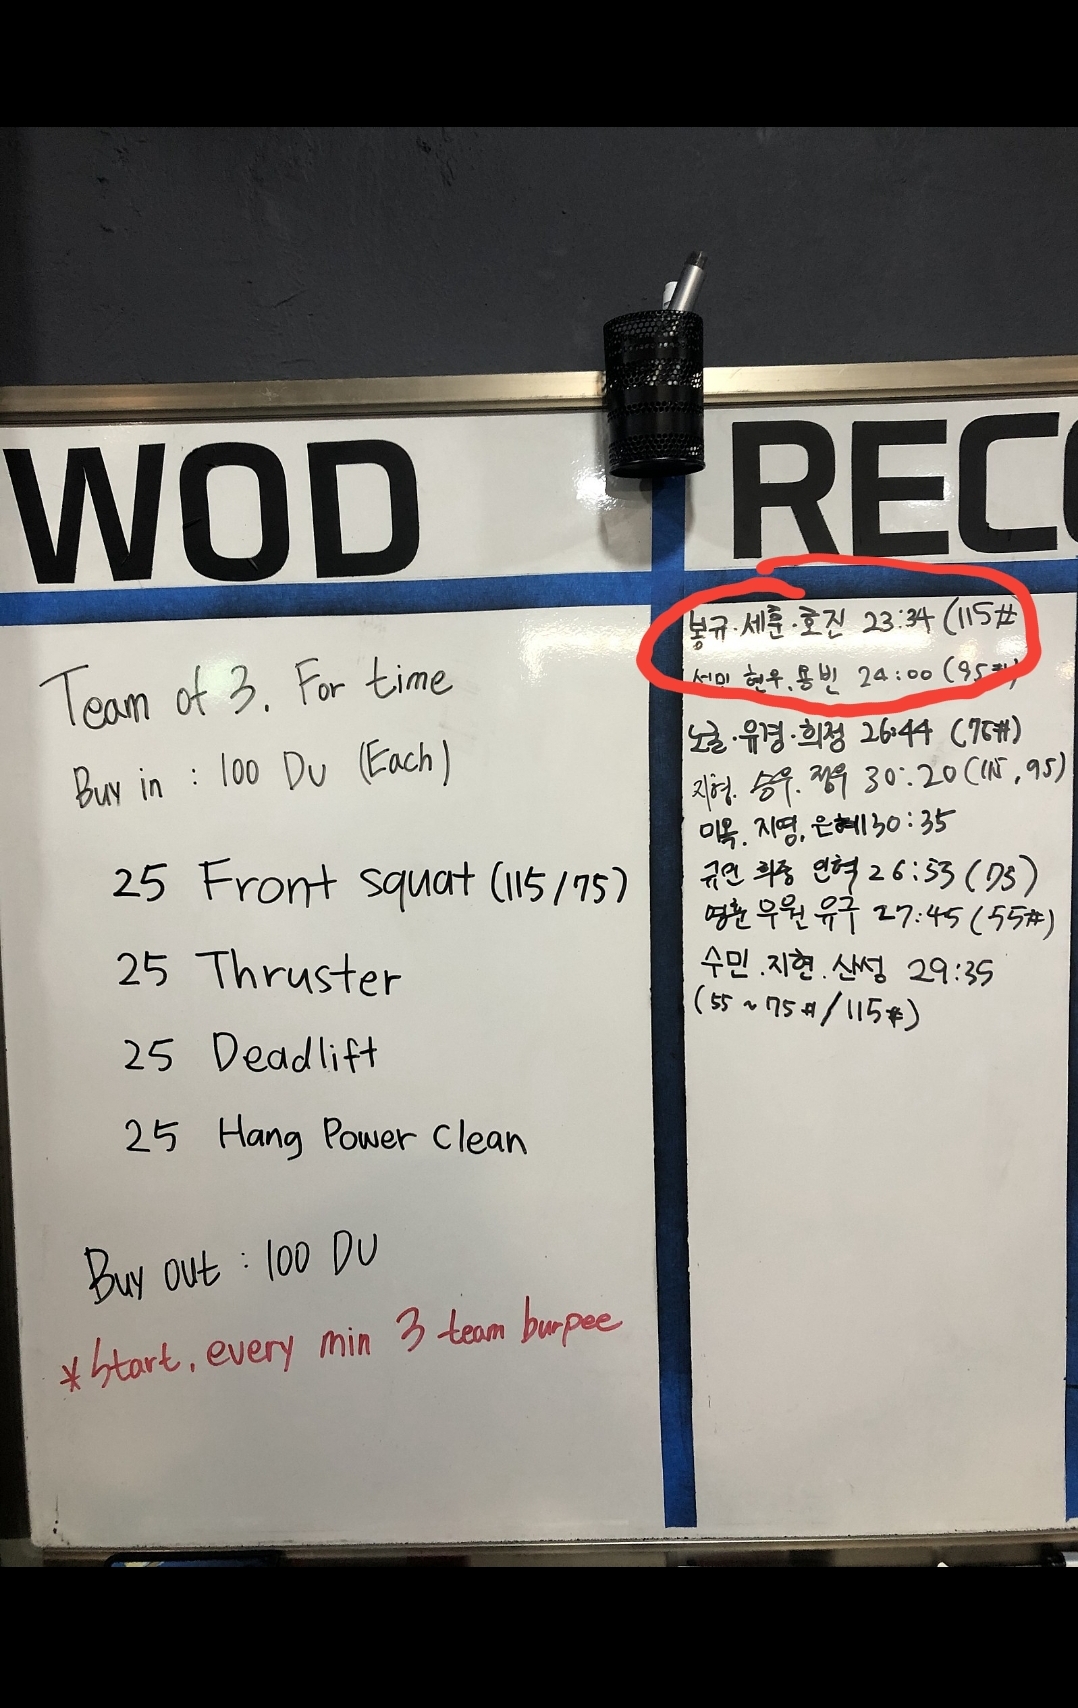 WOD
Team of 3. For time
Buy in : 100 DU (Each)
25 Front squat (115/75)
25 Thruster
25 Deadlift
25 Hang Power Clean
Buy out : 100 DU
*Start, every min 3 team burpee
REC
봉규·세훈·호진 23:34 (115#
현우.용빈 24:00 (95#)
유경·희정 26:44 (75#)
지형. 승우. 정우 30:20 (115, 95)
미옥. 지영, 은혜 30:35
규민 희중 민혁 26:53 (75)
영훈 우원 유구 27:45 (55#)
수민.지현.산성 29:35
(55~75#/115#)